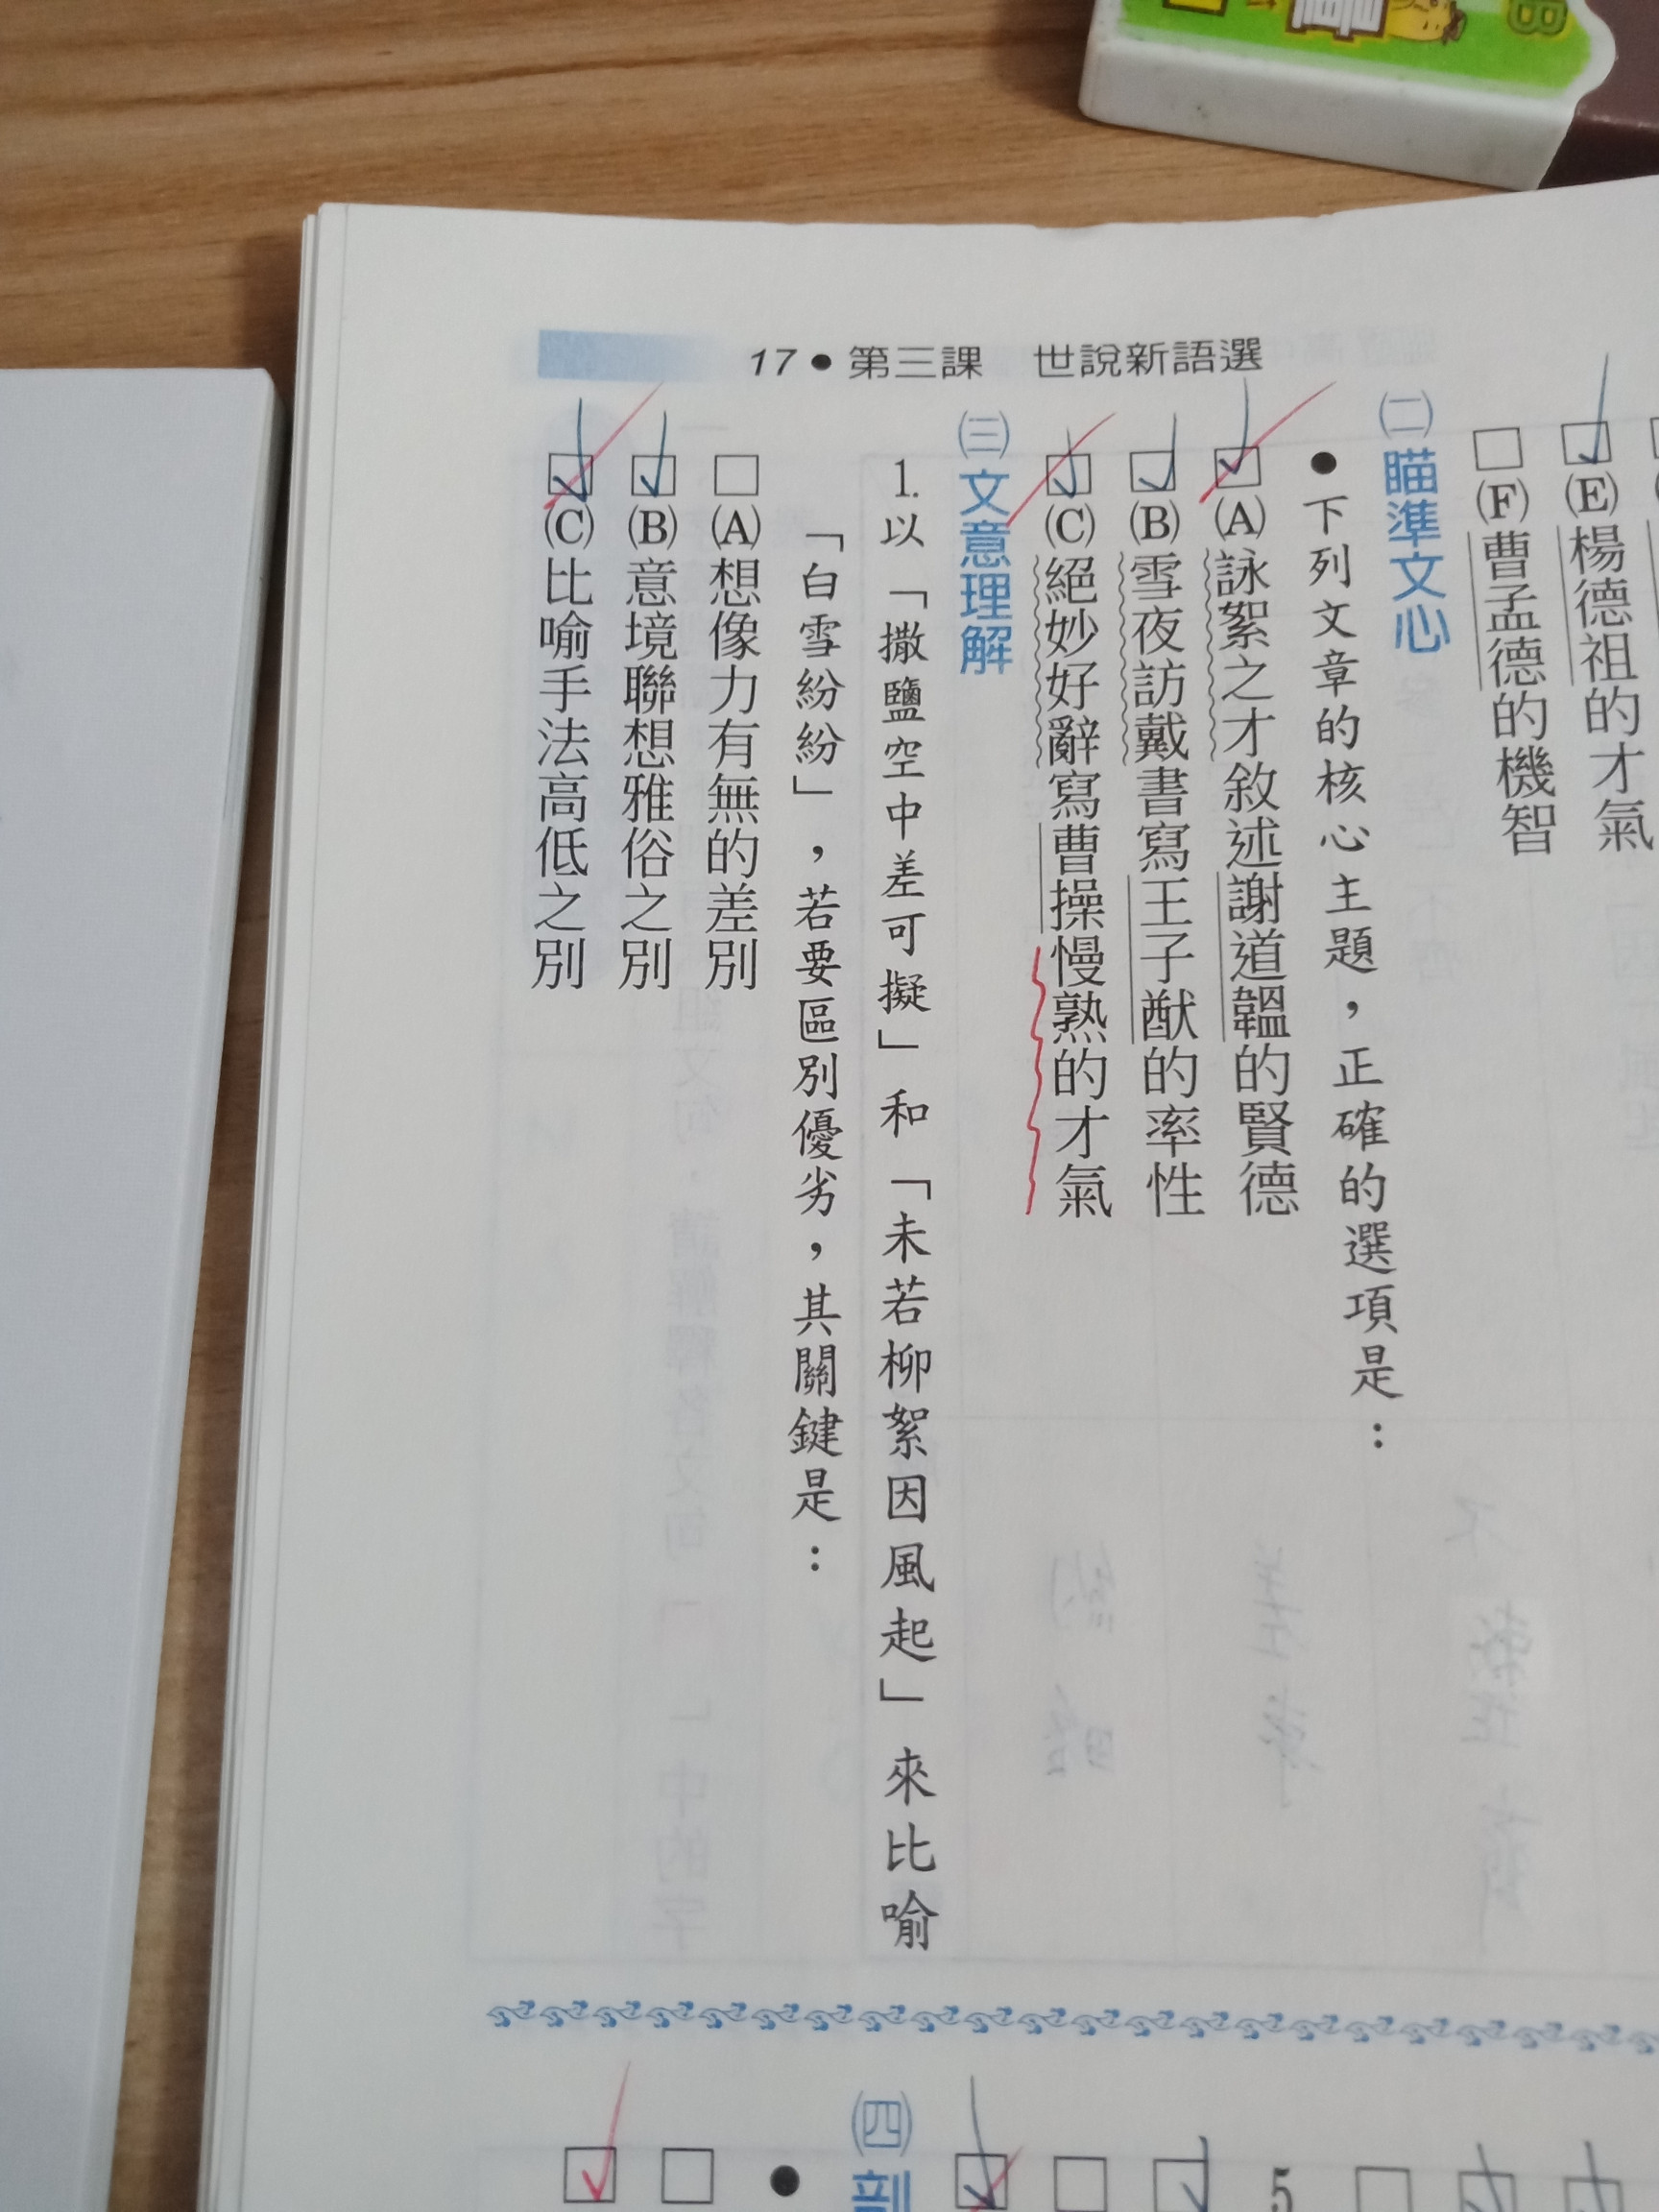 □(E)楊德祖的才氣
□(F)曹孟德的機智
㈡瞄準文心
●下列文章的核心主題，正確的選項是：
□(A)詠絮之才敘述謝道韞的賢德
□(B)雪夜訪戴書寫王子猷的率性
□(C)絕妙好辭寫曹操慢熟的才氣
㈢文意理解
1.以「撒鹽空中差可擬」和「未若柳絮因風起」來比喻
「白雪紛紛」，若要區別優劣，其關鍵是：
□(A)想像力有無的差別
□(B)意境聯想雅俗之別
□(C)比喻手法高低之別
17●第三課 世說新語選
5
㈣剖